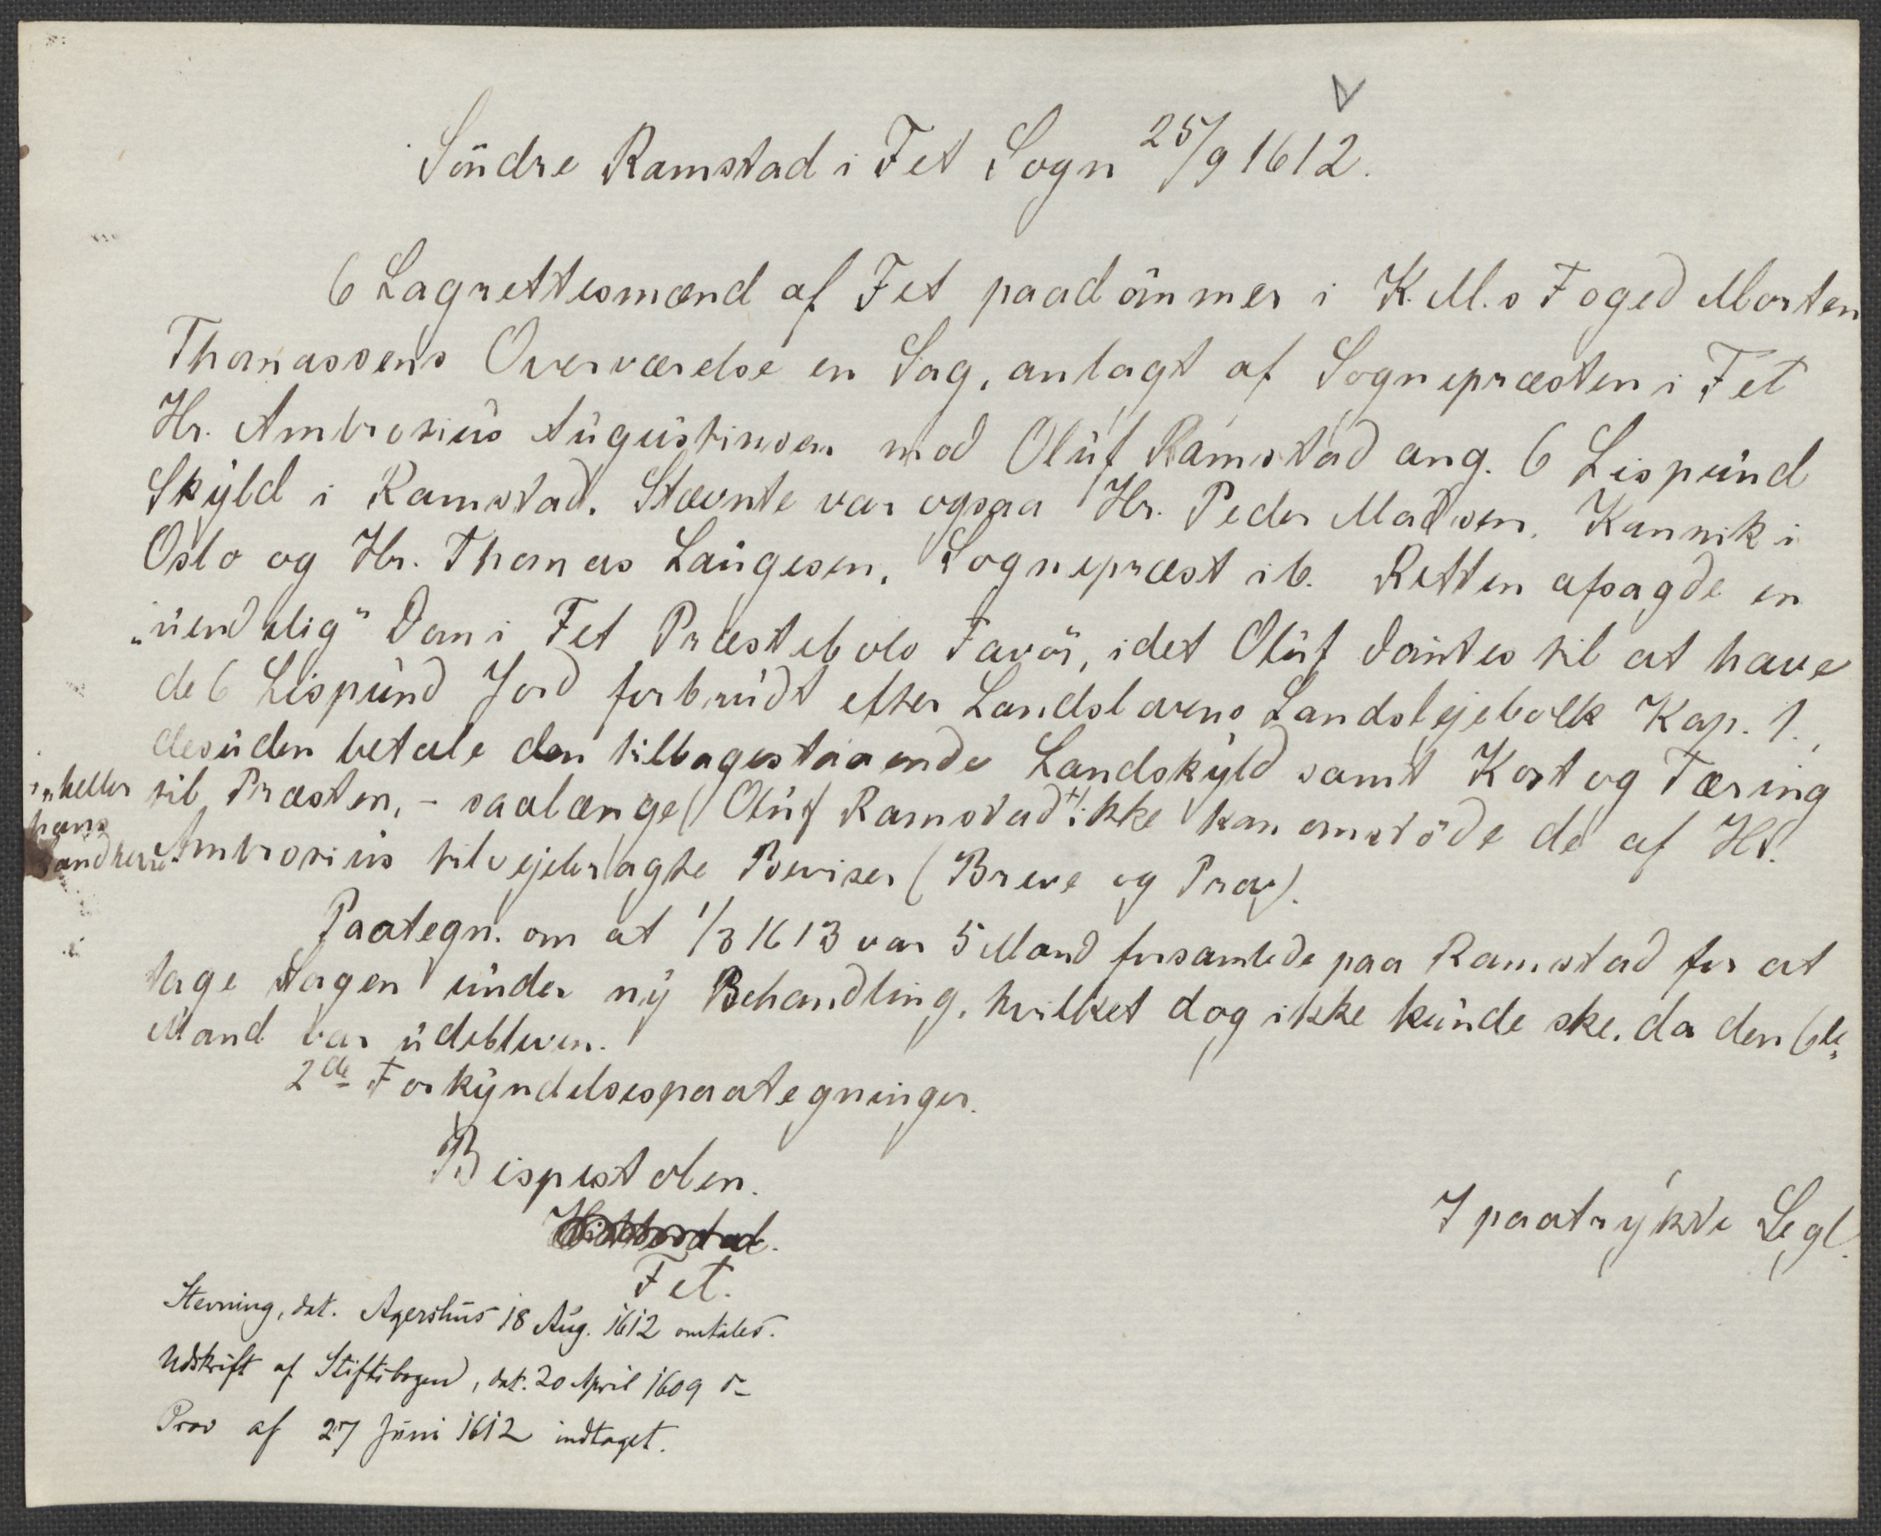 Söndre Ramstad i Fet Sogn 25/9 1612.
6 Lagrettesmænd af Fet paadömmer i K. M.s Foged Morten
Thomassens Overværelse en Sag, anlagt af Sognepræsten i Fet
Hr. Ambrosius Augustinsen mod Oluf Ramstad ang. 6 Lispund
Skyld i Ramstad. Stævnte var ogsaa Hr. Peder Madsen, Kannik i
Oslo og Hr. Thomas Laugesen, Sognepræst ib. Retten afsagde en
"uendelig" Dom i Fet Præstebols Favör, idet Oluf dömtes til at have
de 6 Lispund Jord forbrudt efter Landslovens Landslejebolk Kap. 1.,
desuden betale den tilbagestaaende Landskyld samt Kost og Tæring
til Præsten, - saalænge Oluf Ramstad +/. ikke kan omstöde de af Hr.
./. heller
hans
Landherre
Ambrosius tilvejebragte Beviser (Breve og Prov).
Paategn. om at 1/3 1613 var 5 Mand forsamlede paa Ramstad for at
tage Sagen under ny Behandling, hvilket dog ikke kunde ske, da den 6te
Mand var udebleven.
2de Forkyndelsespaategninger.
Bispestolen.
I paatrykte Segl.
Fet.
Stevning, dat. Agershus 18 Aug. 1612 omtales.
Udskrift af Stiftsbogen, dat. 20 April 1609 d-
Prov af 27 Juni 1612 indtaget.